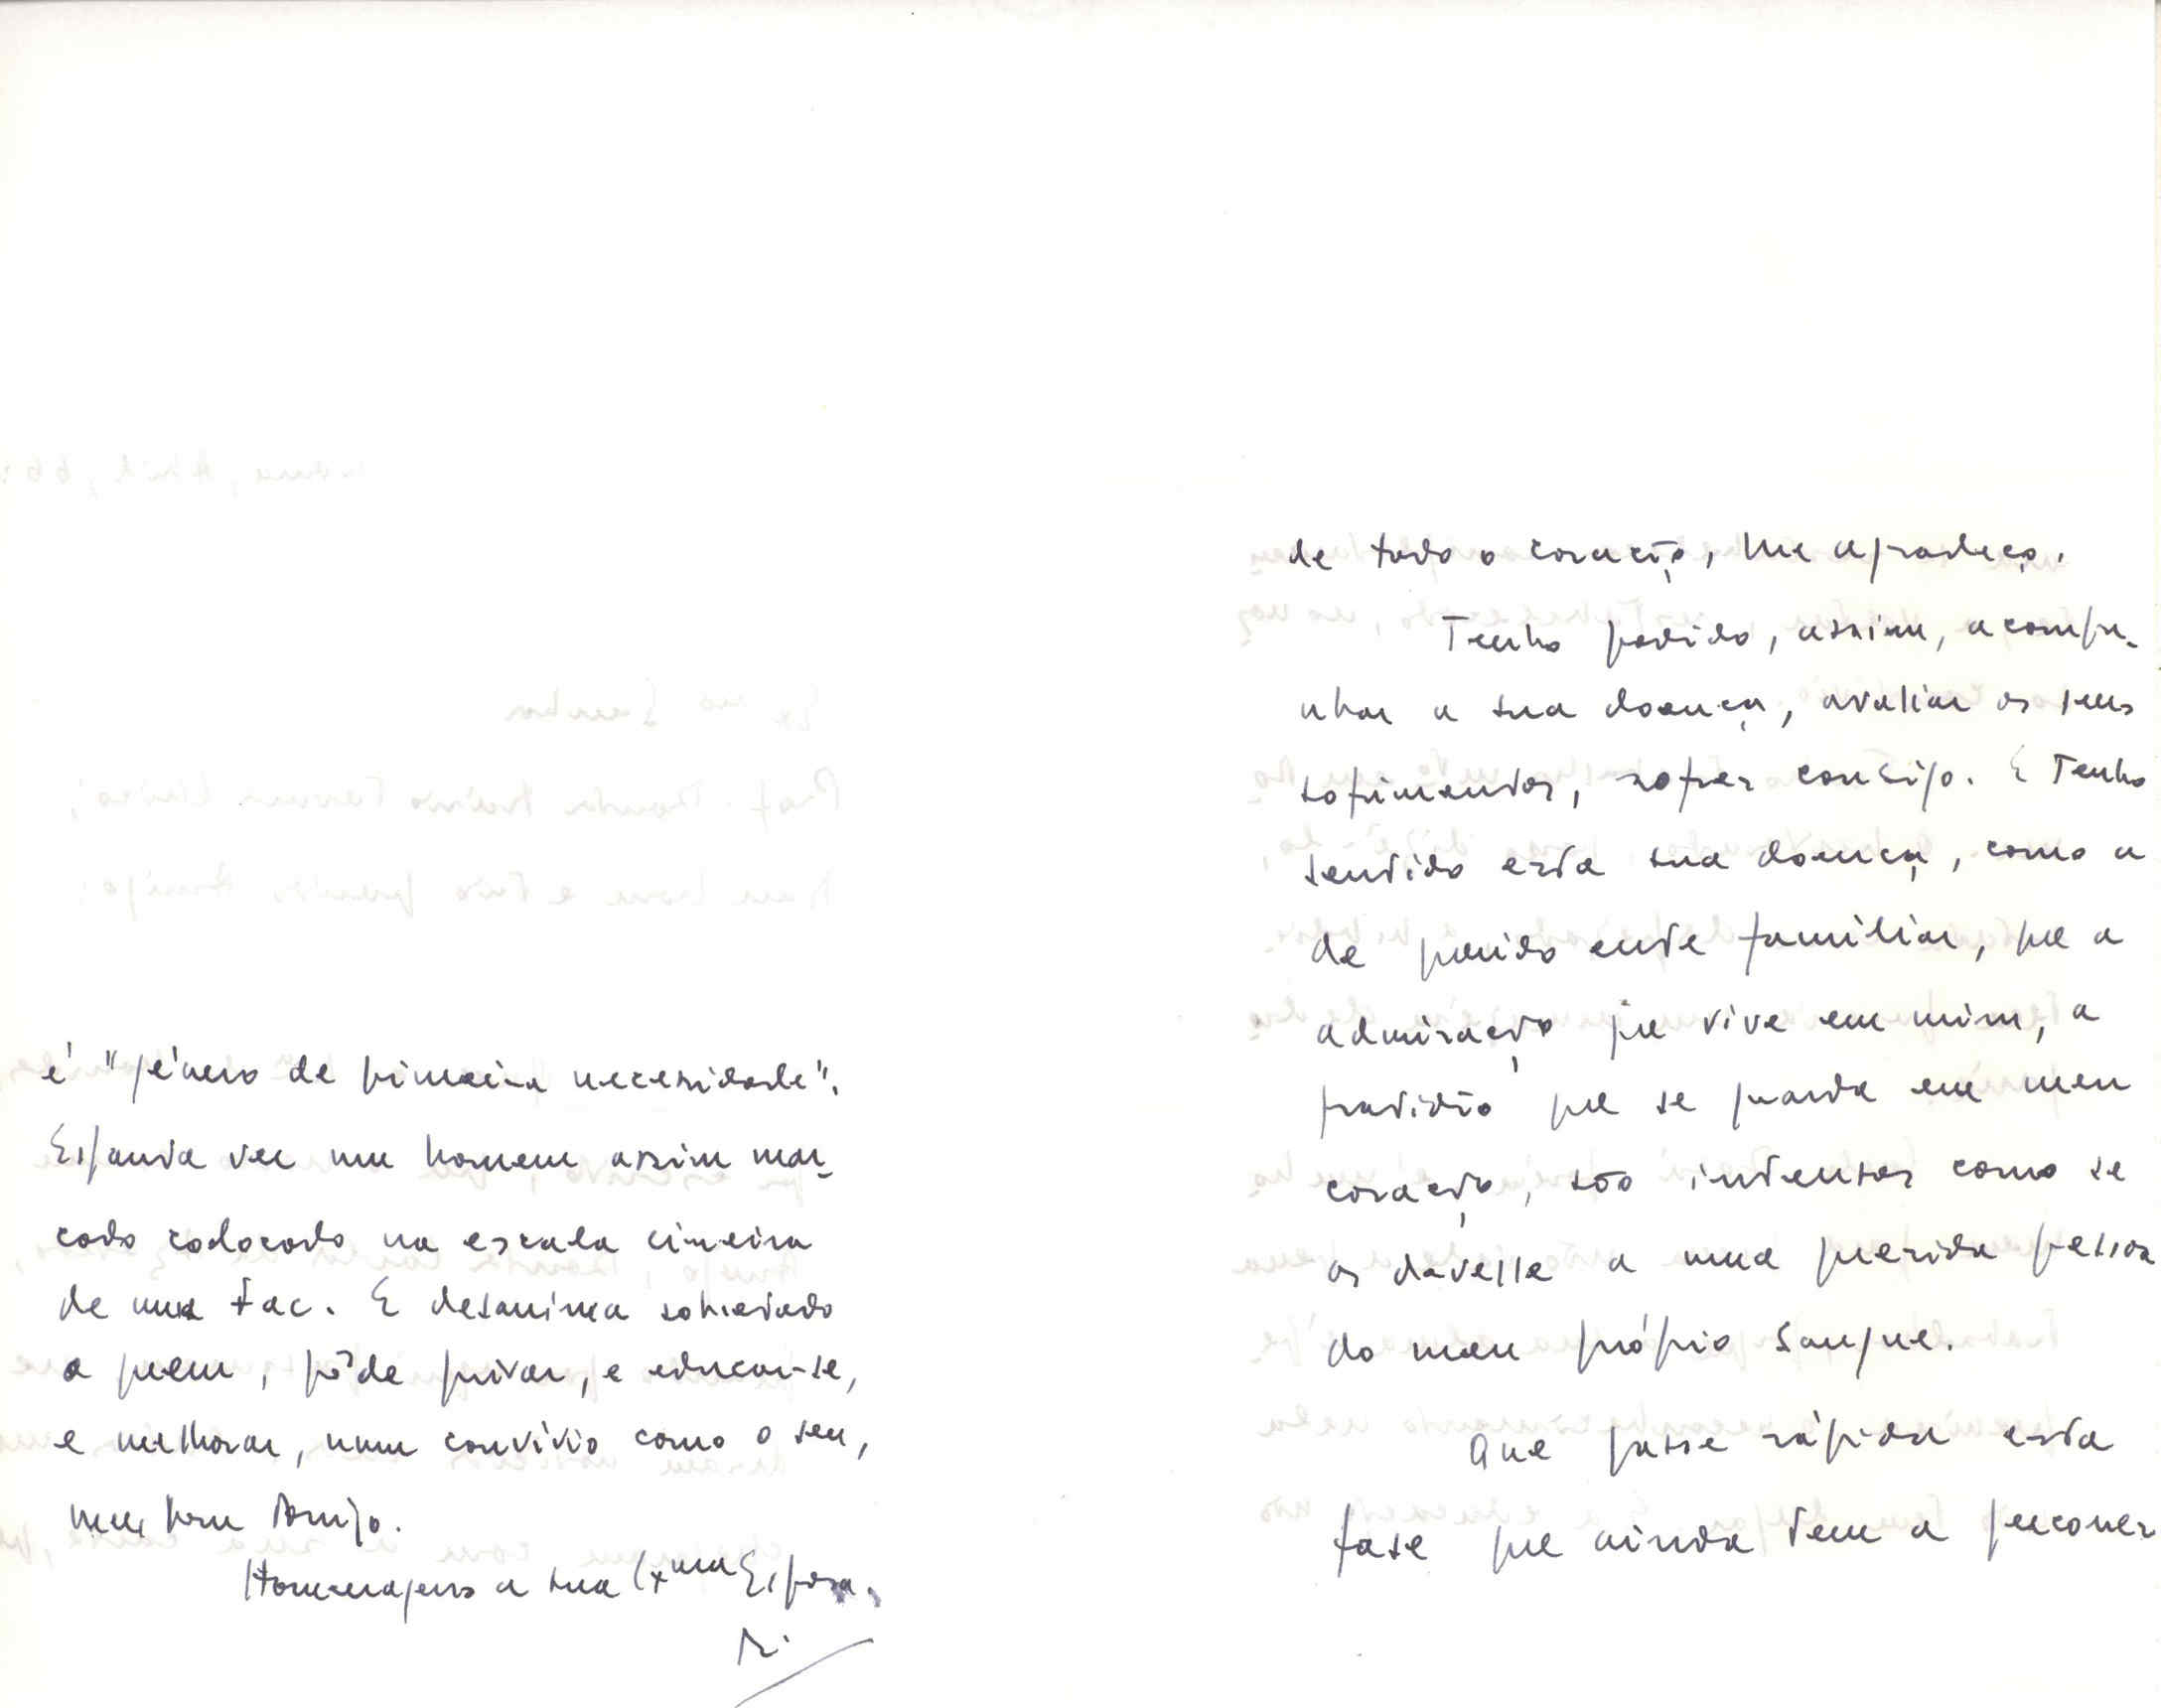 é "género de primeira necessidade".
Espanta ver um homem assim mar-
cado colocado na escala cimeira
de uma Fac. E desanima sobretudo
a quem, pôde privar, e educar-se,
e melhorar, num convívio como o seu,
meu bom Amigo.
Homenagens a sua Exma Esposa.
de todo o coração, lhe agradeço.
Tenho podido, assim, acompa-
nhar a sua doença, avaliar os seus
sofrimentos, sofrer consigo. E Tenho
sentido esta sua doença, como a
de querido ente familiar, que a
admiração que vive em mim, a
gratidão que se guarda em meu
coração, são intensas como se
as devesse a uma querida pessoa
do meu próprio sangue.
Que passe rápida esta
fase que ainda tem a percorrer